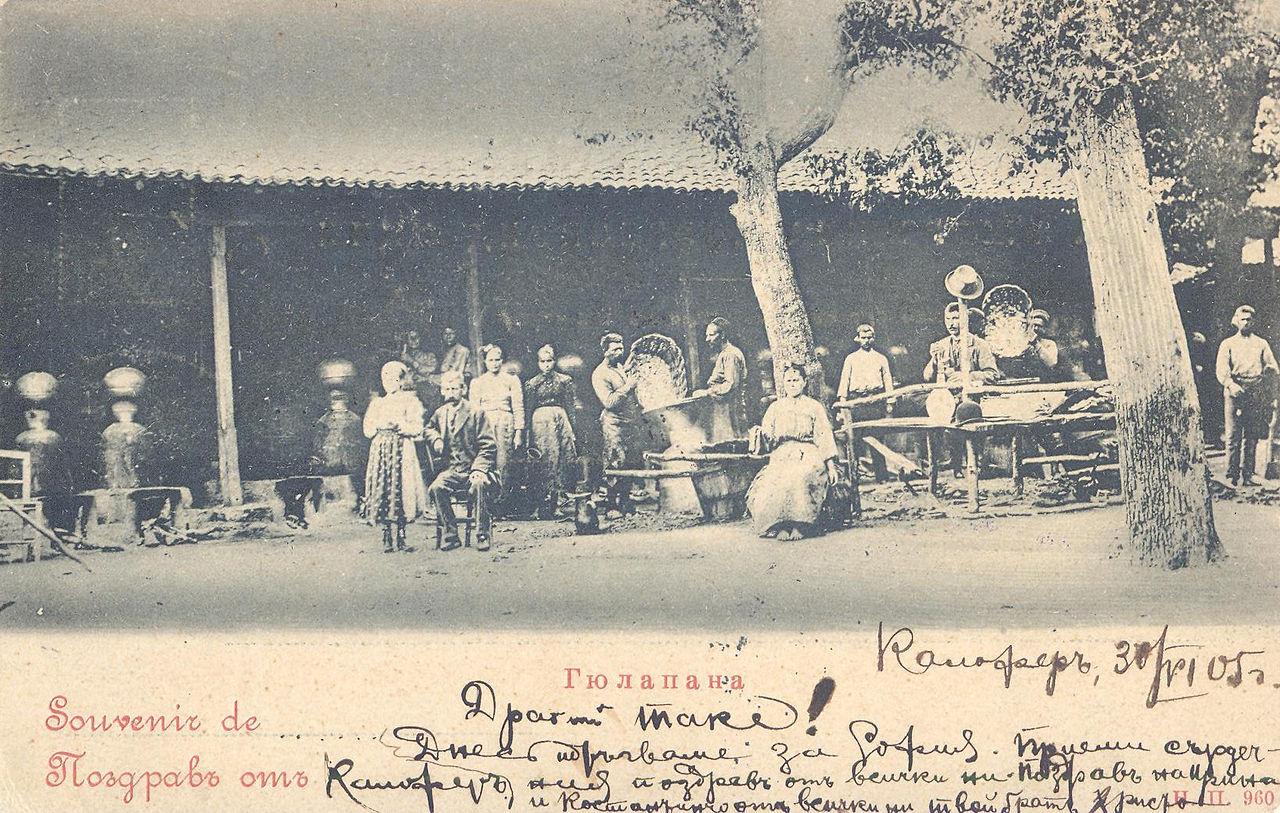 Калоферъ, 30/VI 05 г.
Гюлапана
Souvenir de
Драгий Таке!
Днес тръгваме за София. Приеми сърдеч-
Поздравъ отъ Калоферъ ния поздравъ отъ всички ни. Поздравъ на Ирина
и отъ всички ни твой братъ Христо
Н. П. 960